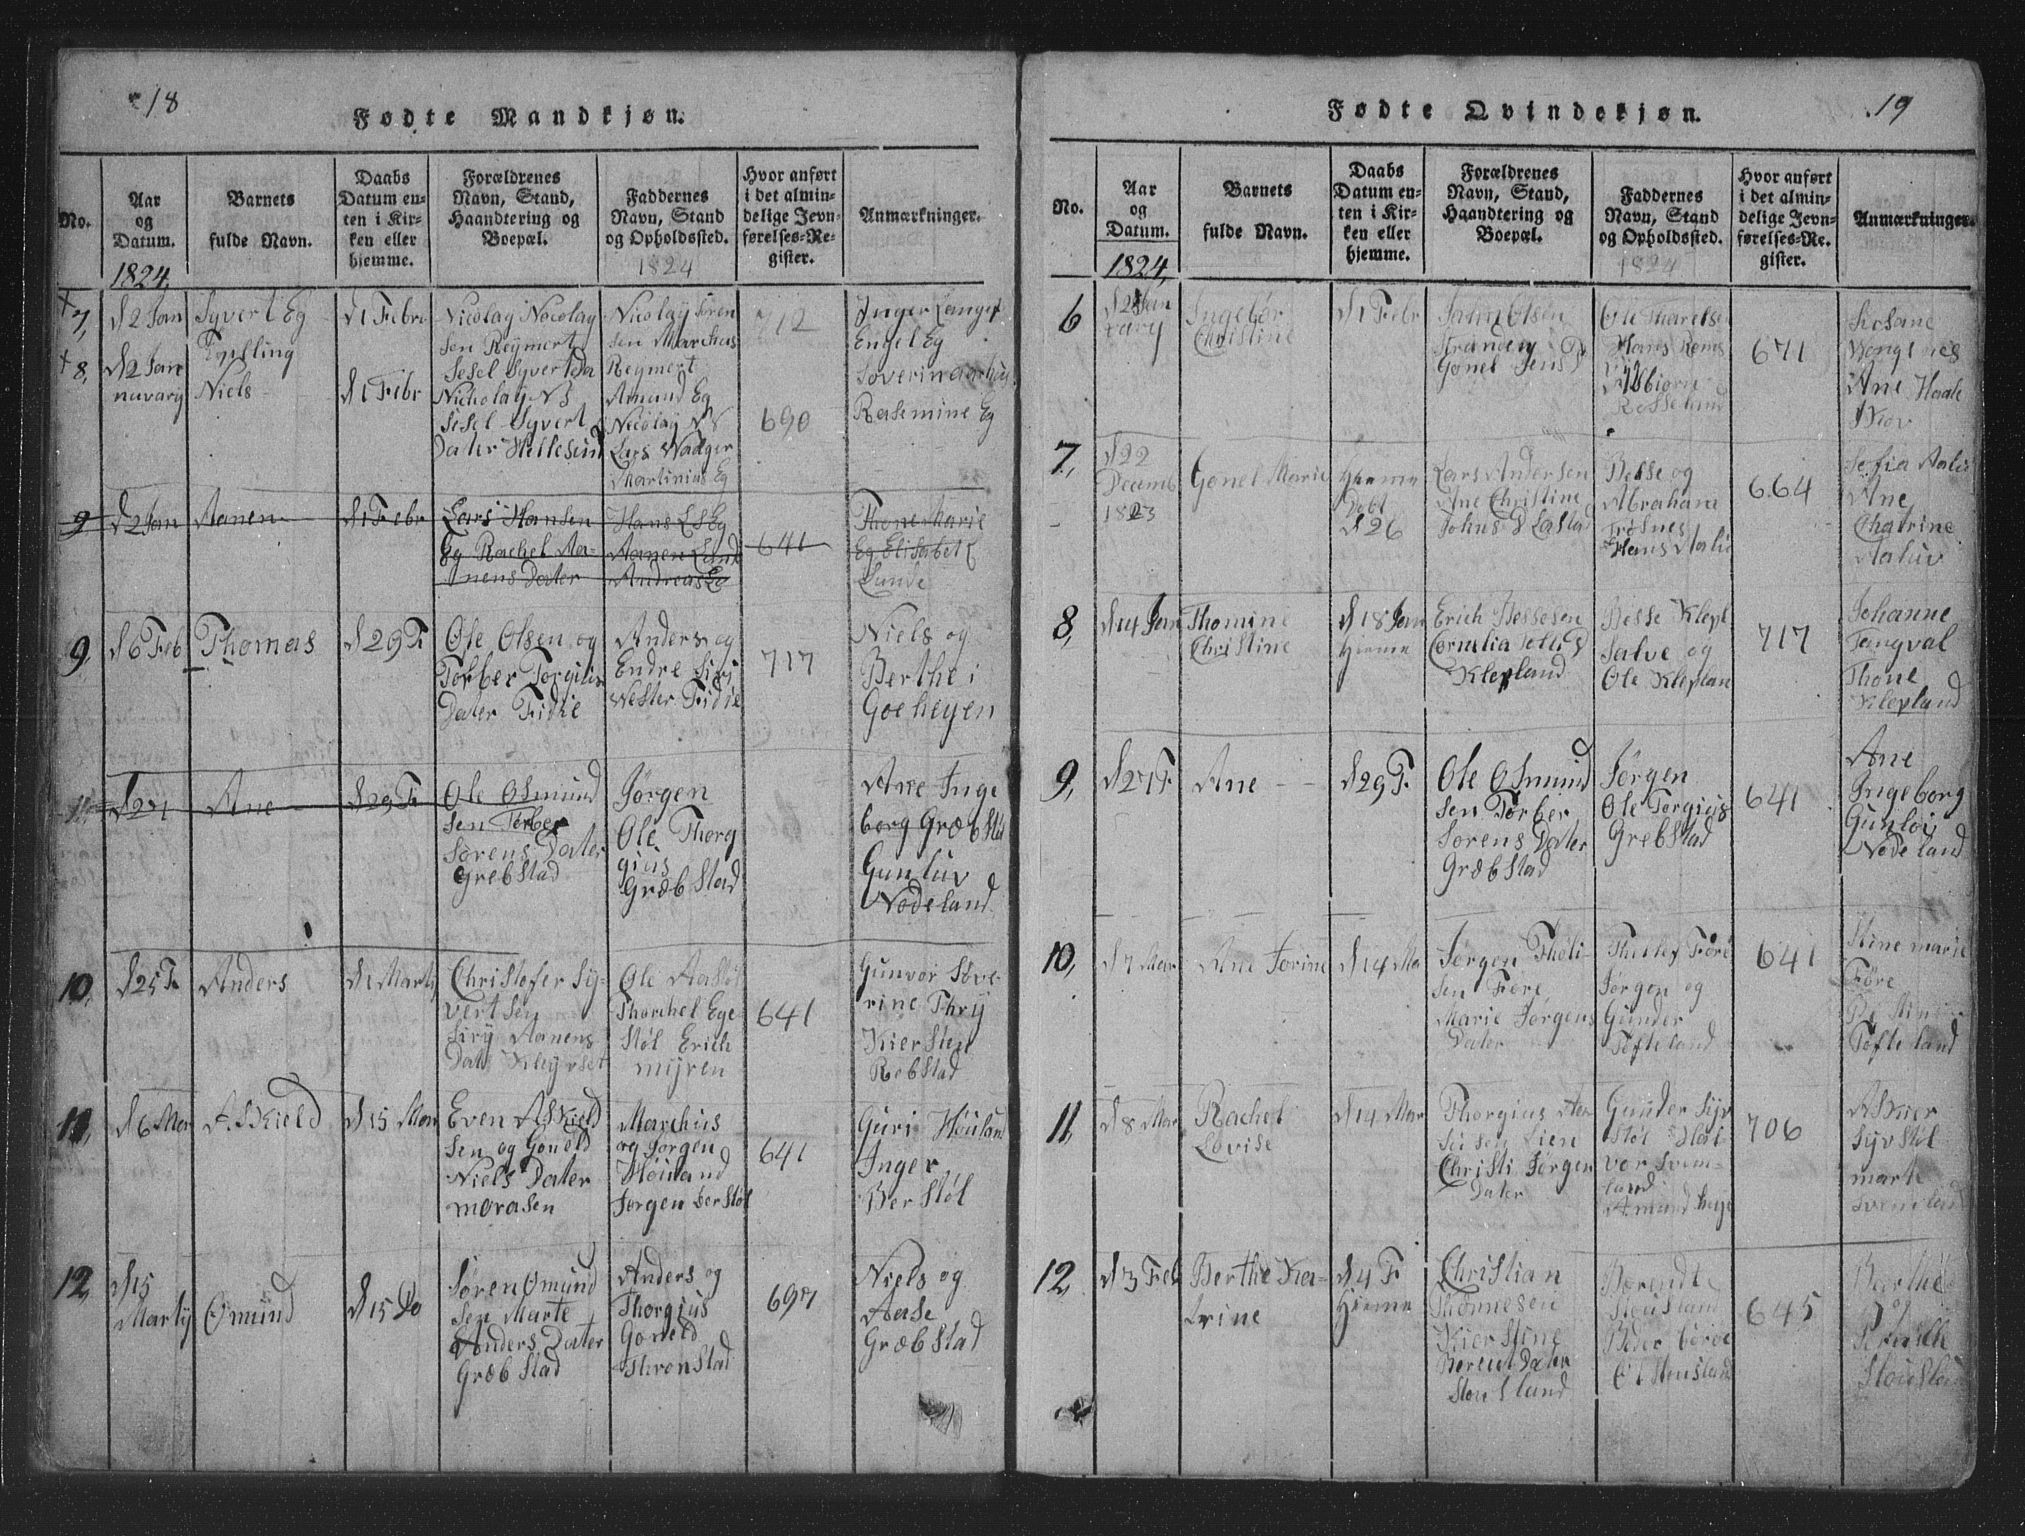 18
Fødte Mandkjøn.
No.
Aar
og
Datum.
1824,
Barnets
fulde Navn.
Daabs
Datum en-
ten i Kir-
ken eller
hjemme.
Forældrenes
Navn, Stand,
Haandtering og
Boepæl.
Faddernes
Navn, Stand
og Opholdssted.
1824
Hvor anført
i det almin-
delige Jevn-
førelses-Re-
gister.
Anmærkninger.
+7,
d 2 Jan
Syvert Eg
d 1 Febr
Nicolay Nocolay
sen Reymert
Sesel Syvert Da
Nicolay Søren
sen Marchus
Reymert
712
Inger Langef
Engel Eg
+8,
d 2 Jan
nuvary
Tvilling
Niels
d 1 Febr
Nicholay NS
Sesel Syvert
Dater Hellesund
Amund Eg
Nicolay NS
Lars Wadger
Martinius Eg
690
Rasmine Eg
9
d 2 Jan
Aanen
d 1 Febr
Lars Hansen
Eg Rachel Aa-
nens Dater
Hans LS Eg
Aanen Lund
Andreas Eg
641
Thone Marie
Eg Elisabet
Lunde
9,
d 6 Feb
Thomas
d 29 F
Ole Olsen og
Torber Torgius
Dater Fidie
Anders og
Endre Siri
Wester Fidie
717
Niels og
Berthe i
Goeheyen
11
d 27
Ane
d 29 F
Ole Osmund
sen Torber
Sørens Dater
Grebstad
Jørgen
Ole Thorg
gius
Græbstad
Ane Inge
borg Græbstad
Gunluv
Nodeland
10,
d 25 F
Anders
d 1 Marty
Christofer Sy-
vertsen
Siry Aanens
Dat Kleyvset
Ole Aastøl
Thorchel Ege
støl Erich
myren
641
Gunvor Seve-
rine Thry
Kiersten
Rebstad
11,
d 6 Mar
Askield
d 15 Mar
Even Askield
sen og Goneld
Niels Dater
morasen
Marchus
og Jørgen
Høiland
Jørgen Berstøl
641
Guri Høiland
Inger
Berstøl
12,
d 15
Marty
Omund
d 15 Do
Søren Omund
sen Marte
Anders Dater
Græbstad
Anders og
Thorgius
Goneld
Thronstad
697
Niels og
Aase
Græbstad
19
Fødte Qvindekjøn.
No.
Aar
og
Datum.
1824,
Barnets
fulde Navn.
Daabs
Datum en-
ten i Kir-
ken eller
hjemme.
Forældrenes
Navn, Stand,
Haandtering og
Boepæl.
Faddernes
Navn, Stand
og Opholdssted.
1824
Hvor anført
i det almin-
delige Jevn-
førelses-Re-
gister.
Anmærkninger.
6
d 2 Jan
uary
Ingebor
Christine
d 1 Febr
Olsen
Stranden
Gonel Jens D
Ole
Hans
671
Ane
7,
d 22
Decemb
1823
Gonel Marie
Hiemme
Døbt
d 26
Lars Andersen
Ane Christine
Johns D Lastad
Besse og
Abraham
Trosnes
Hans
664
Sofia
Ane
Chatrine
8,
d 14 Jan
Thomine
Christine
d 18 Jan
Hiemme
Erich Bessesen
Cornelia
Klepland
Besse Klepl
Salve og
Ole Kleplan
717
Johanne
Tangval
Thone
Klepland
9,
d 27 F
Ane
d 29 F
Ole Osmund
sen Torber
Sorens Dater
Græbstad
Jørgen
Ole Torgius
Grebstad
641
Ane
Ingeborg
Gunloiy
Nodeland
10,
d 7 Mar
Ane Jorine
d 14 Ma
Jørgen Theli-
sen Føre
Marie Jørgens
Dater
Thellef Føre
Jørgen og
Gunder
Tofteland
641
Stine marie
Føre
Tofteland
11,
d 8 Mar
Rachel
Lovise
d 14 Mar
Thorgius
Lien
Christi Jørgen
Dater
Gunder Syv
støl Hal-
vor Svem-
land
Amund
706
Asker
Syvstøl
marte
12,
d 3 Feb
Berthe Ka-
trine
d 4 F
Hiemme
Christian
Thonnesen
Kierstine
Berent Dater
Stousland
Børendte
Stousland
645
Berthe
og
Pernille
Stousland